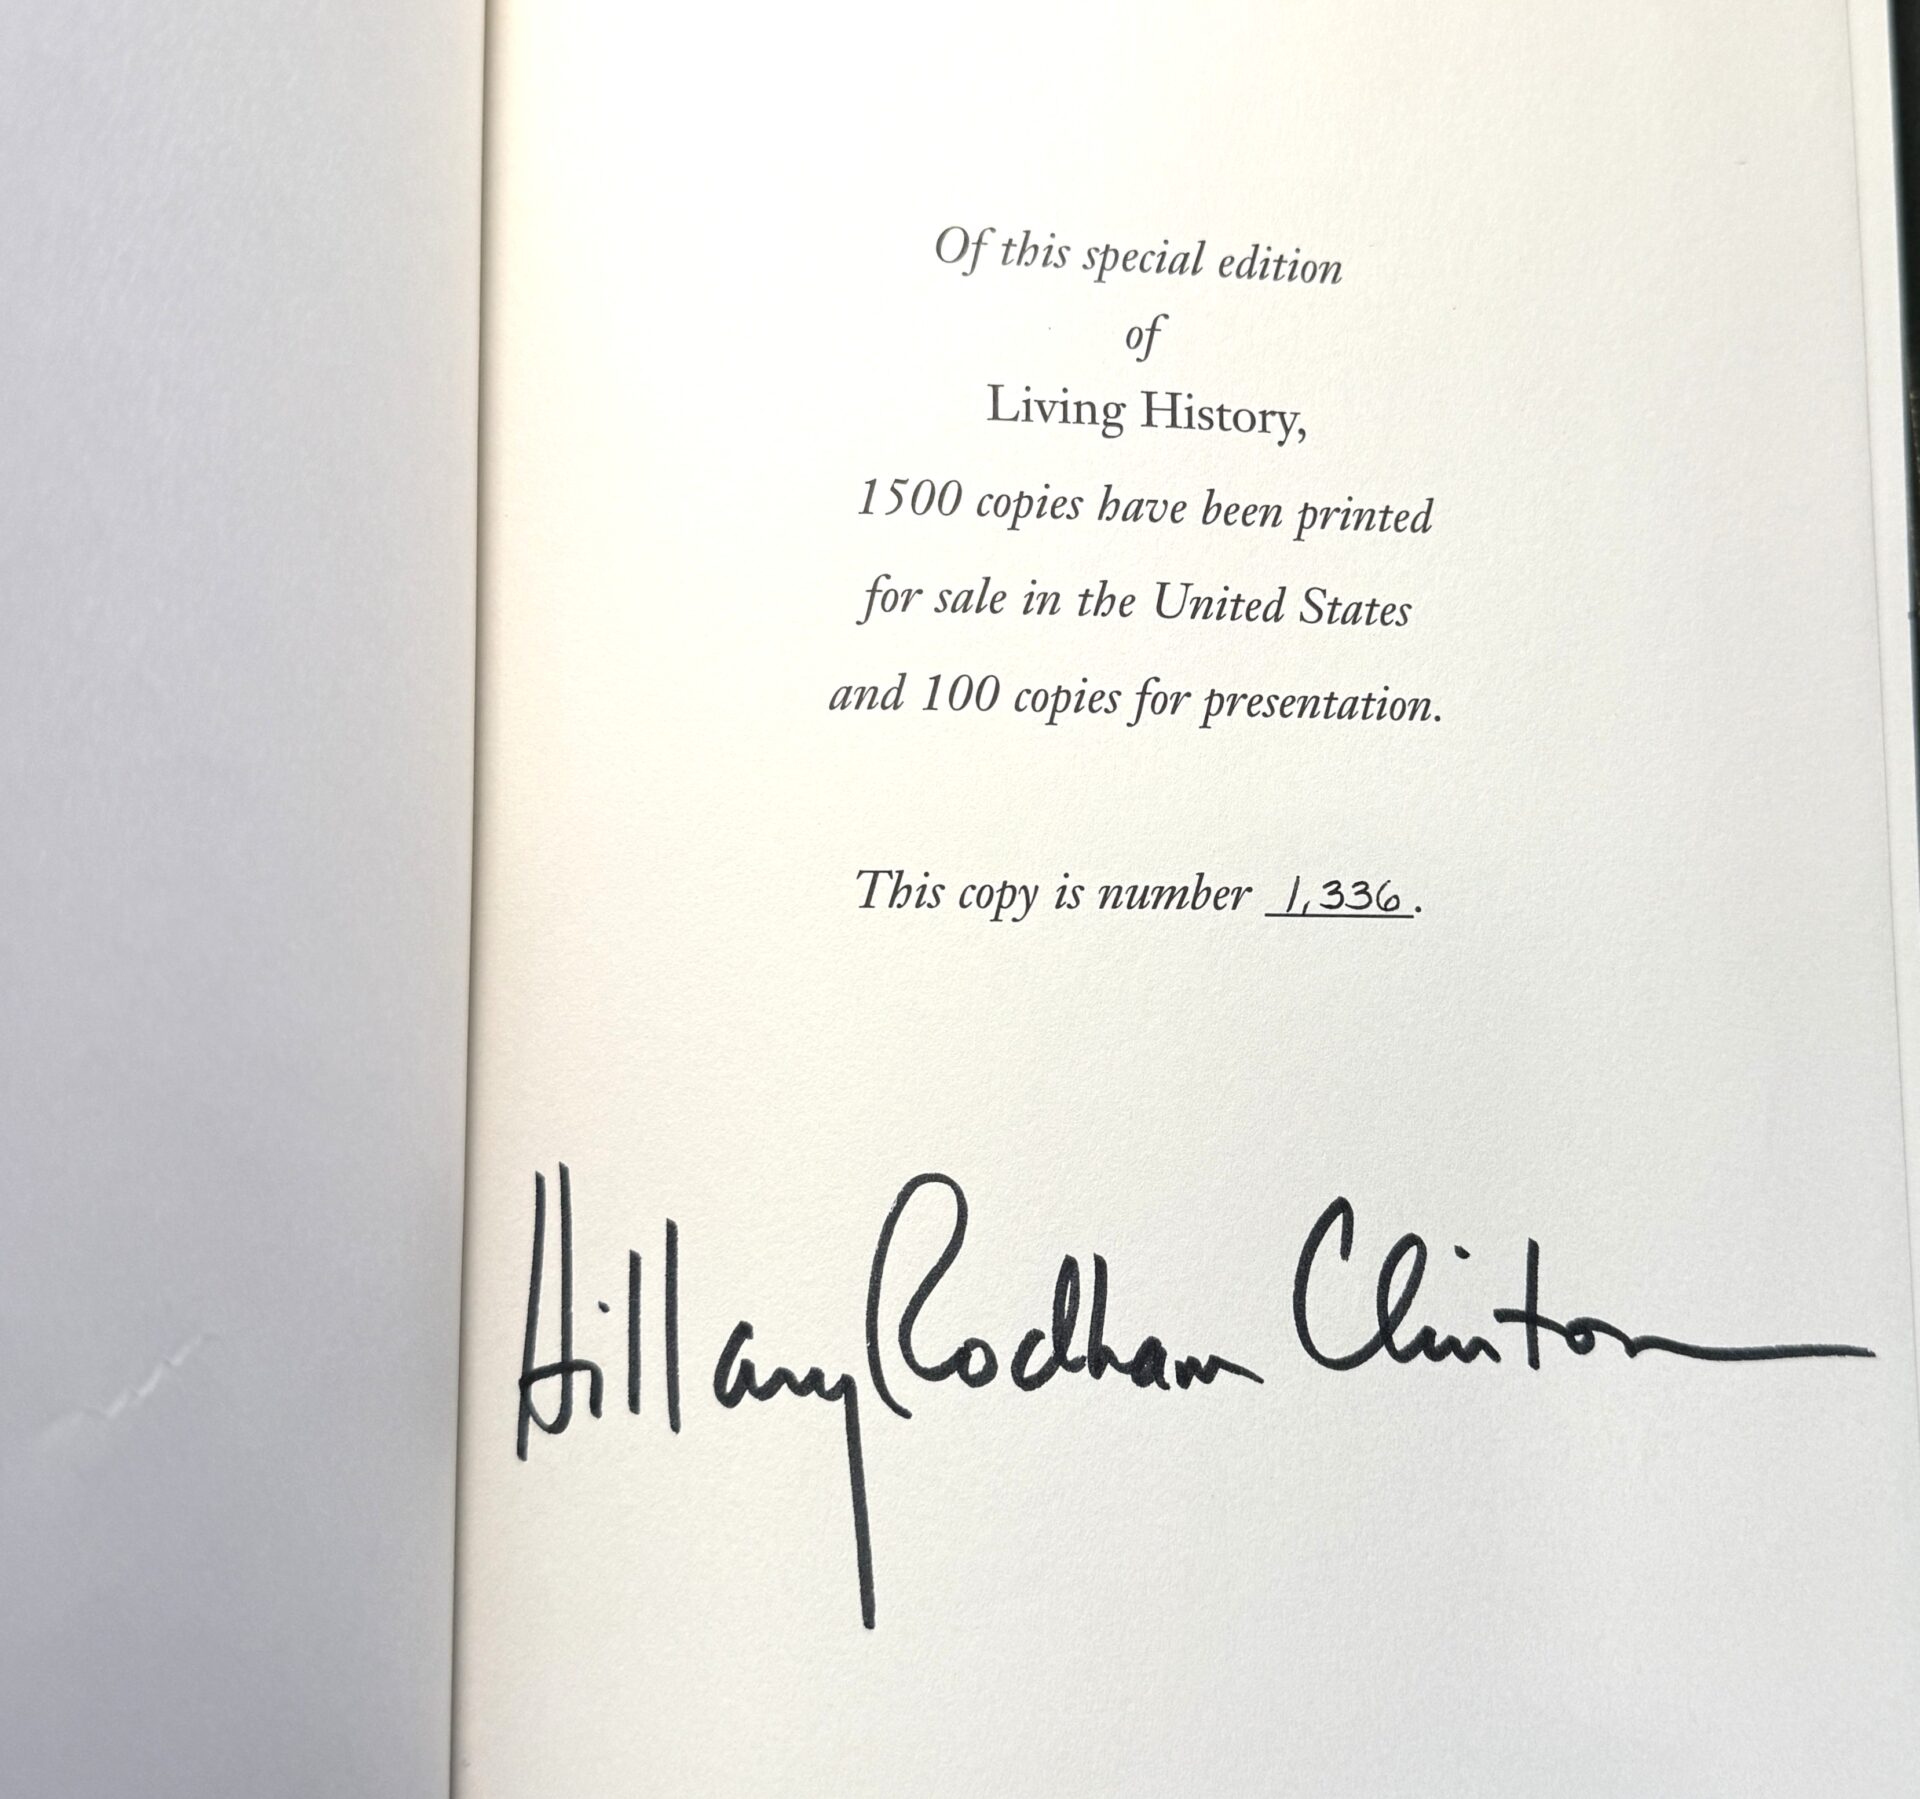 Of this special edition
of
Living History,
1500 copies have been printed
for sale in the United States
and 100 copies for presentation.
This copy is number 1,336.
Hillary Rodham Clinton